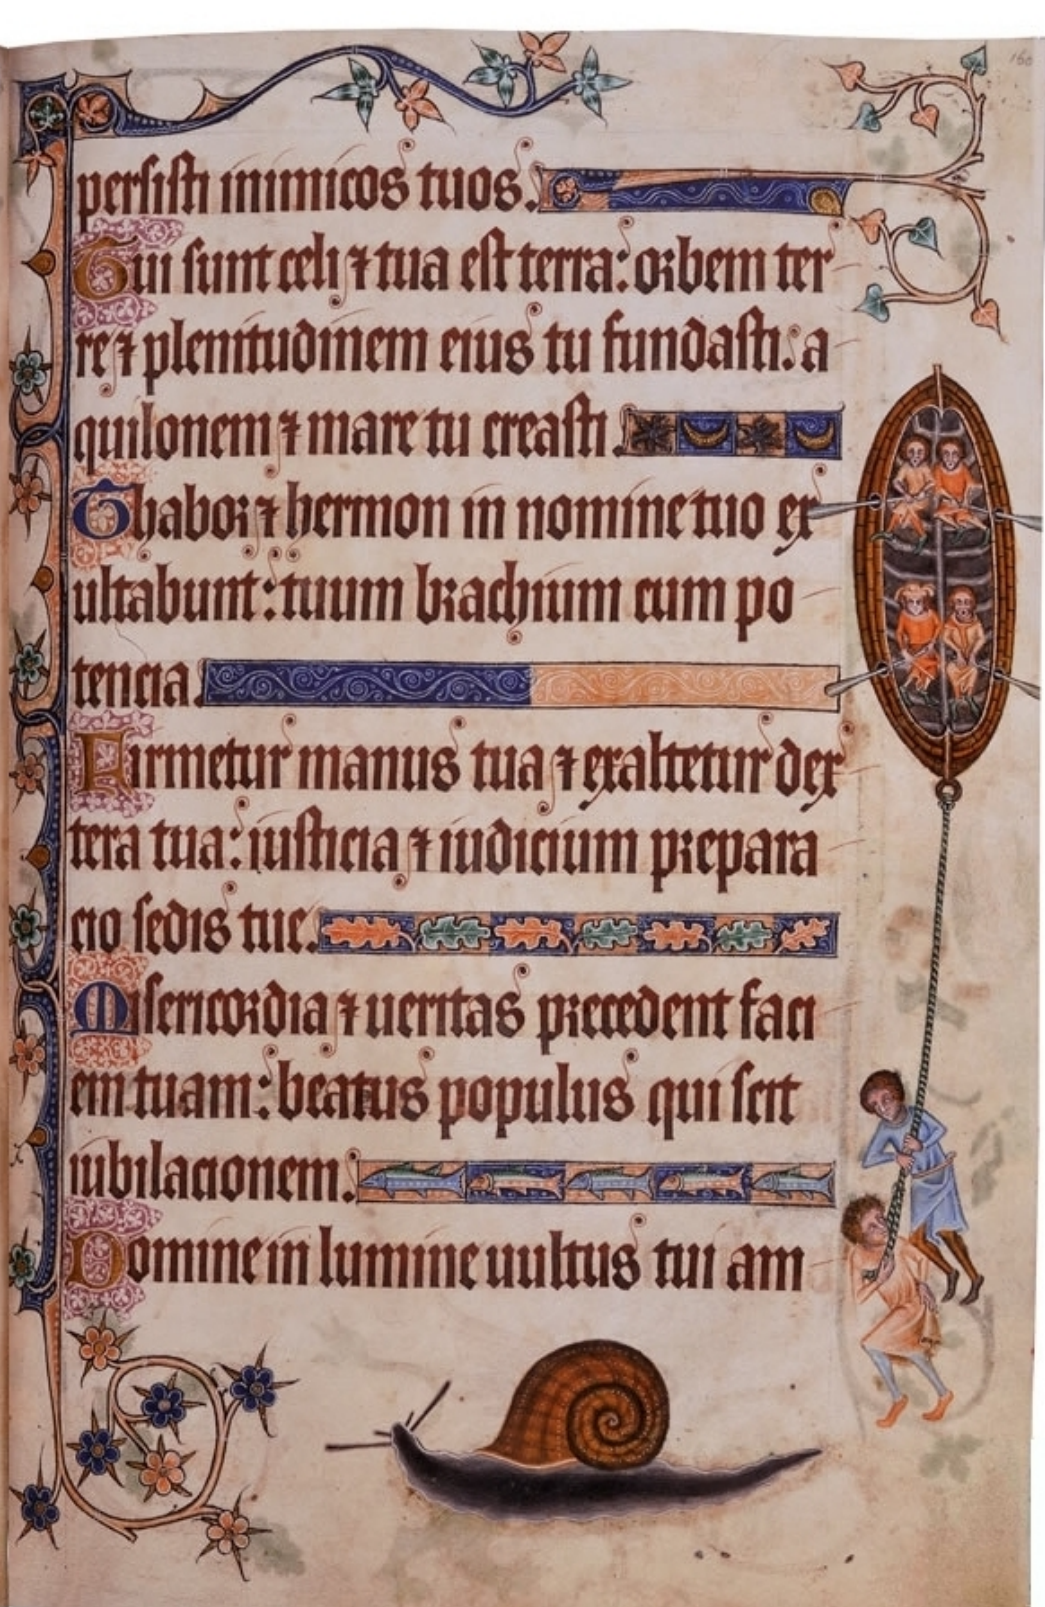 160
persisti inimicos tuos.
Tui sunt celi ⁊ tua est terra: orbem ter
re ⁊ plenitudinem eius tu fundasti: a
quilonem ⁊ mare tu creasti.
Thabor ⁊ hermon in nomine tuo ex
ultabunt: tuum brachium cum po
tencia.
Firmetur manus tua ⁊ exaltetur dex
tera tua: iusticia ⁊ iudicium prepara
cio sedis tue.
Misericordia ⁊ ueritas precedent faci
em tuam: beatus populus qui scit
iubilacionem.
Domine in lumine uultus tui am